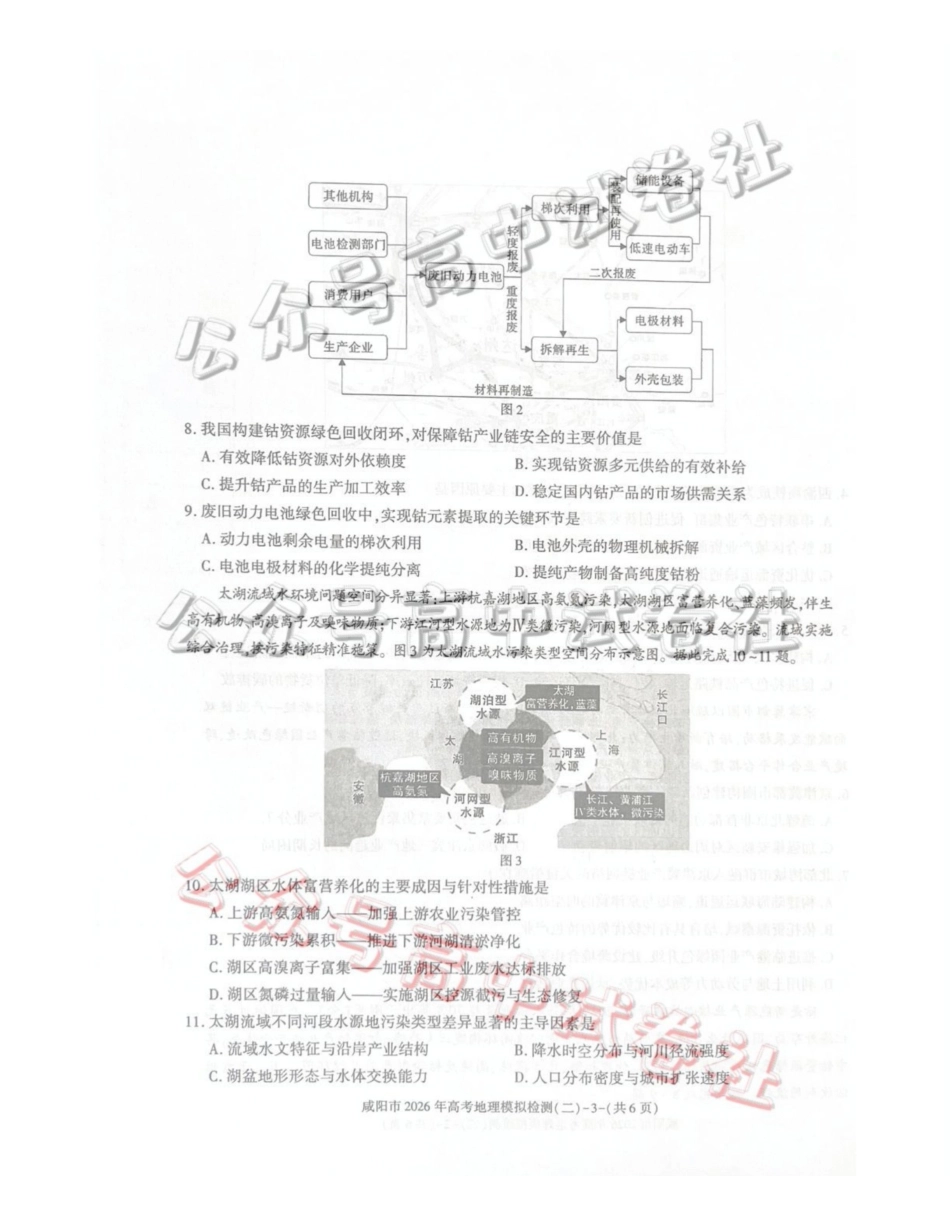 其他机构
电池检测部门
消费用户
生产企业
废旧动力电池
轻度报废
重度报废
梯次利用
装配再使用
储能设备
低速电动车
二次报废
拆解再生
电极材料
外壳包装
材料再制造
图2
8. 我国构建钴资源绿色回收闭环,对保障钴产业链安全的主要价值是
A. 有效降低钴资源对外依赖度
B. 实现钴资源多元供给的有效补给
C. 提升钴产品的生产加工效率
D. 稳定国内钴产品的市场供需关系
9. 废旧动力电池绿色回收中,实现钴元素提取的关键环节是
A. 动力电池剩余电量的梯次利用
B. 电池外壳的物理机械拆解
C. 电池电极材料的化学提纯分离
D. 提纯产物制备高纯度钴粉
太湖流域水环境问题空间分异显著:上游杭嘉湖地区高氨氮污染,太湖湖区富营养化、蓝藻频发,伴生
高有机物、高溴离子及嗅味物质;下游江河型水源地为Ⅳ类微污染,河网型水源地面临复合污染。流域实施
综合治理,按污染特征精准施策。图3为太湖流域水污染类型空间分布示意图。据此完成10~11题。
江苏
湖泊型
水源
太湖
富营养化,蓝藻
长江口
太湖
高有机物
高溴离子
嗅味物质
江河型
水源
上海
安徽
杭嘉湖地区
高氨氮
河网型
水源
长江、黄浦江
Ⅳ类水体,微污染
浙江
图3
10. 太湖湖区水体富营养化的主要成因与针对性措施是
A. 上游高氨氮输入——加强上游农业污染管控
B. 下游微污染累积——推进下游河湖清淤净化
C. 湖区高溴离子富集——加强湖区工业废水达标排放
D. 湖区氮磷过量输入——实施湖区控源截污与生态修复
11. 太湖流域不同河段水源地污染类型差异显著的主导因素是
A. 流域水文特征与沿岸产业结构
B. 降水时空分布与河川径流强度
C. 湖盆地形形态与水体交换能力
D. 人口分布密度与城市扩张速度
咸阳市2026年高考地理模拟检测(二)-3-(共6页)
公众号高中试卷社
公众号高中试卷社
公众号高中试卷社